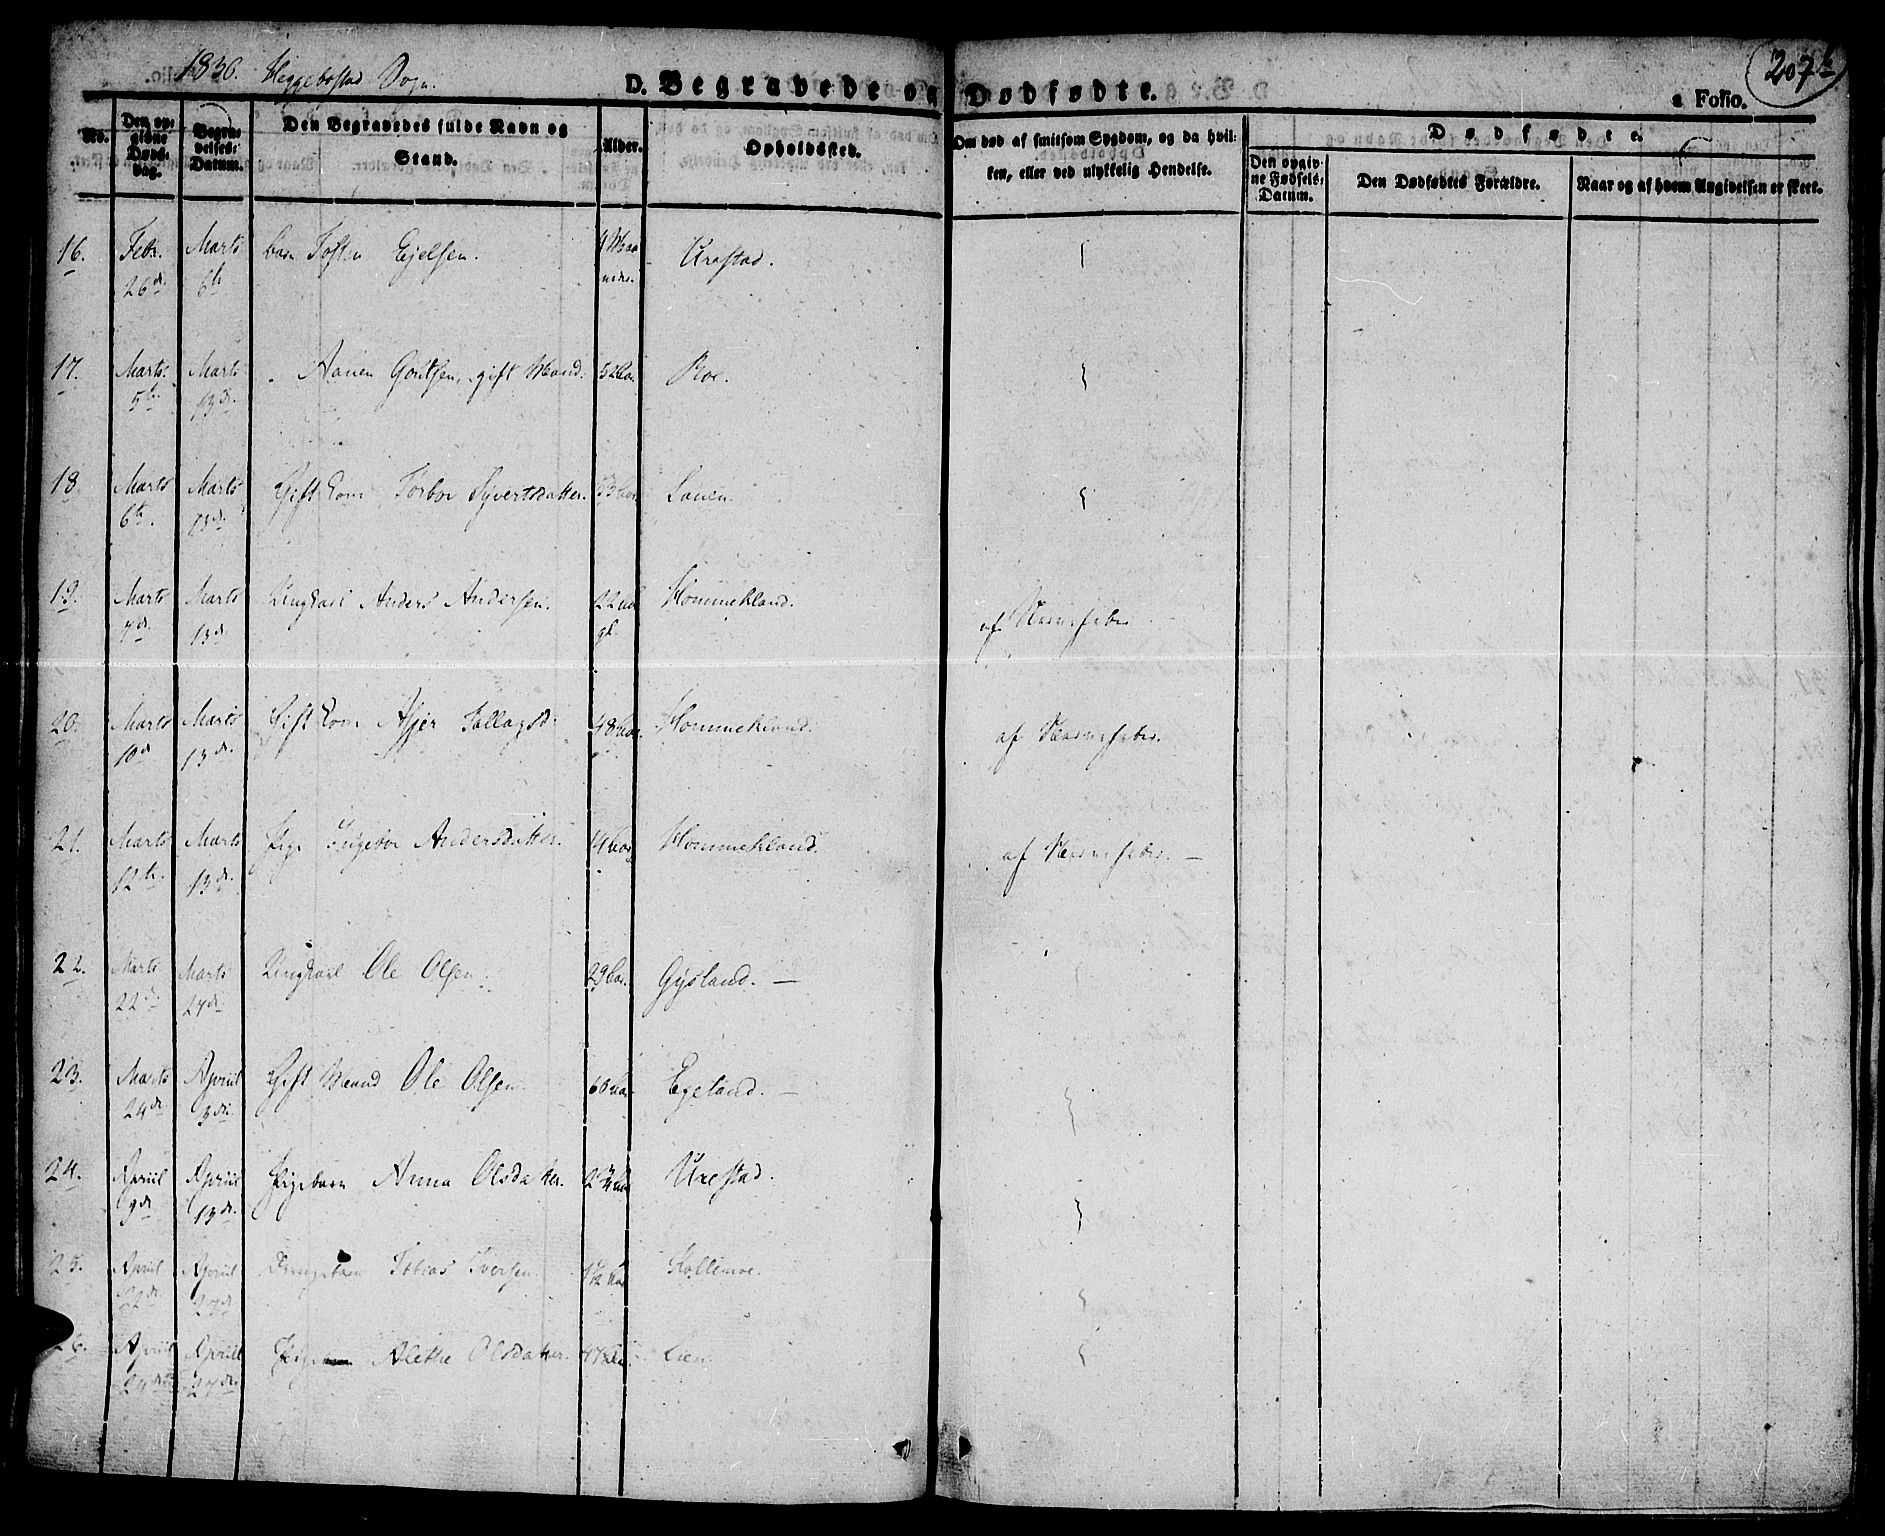 1836. Heggebostad Sogn.
D. Begravede og Dødfødte.
207 b
a Folio.
No. Den opgivne Dødsdag. Begravelses-Datum. Den Begravedes fulde Navn og Stand. Alder. Opholdssted. Om død af smitsom Sygdom, og da hvilken, eller ved ulykkelig Hendelse. Dødfødte.
Den opgivne Fødsels-Datum. Den Dødfødtes Forældre. Naar og af hvem Angivelsen er skeet.
16. Febr. 26de Marts 6te Barn Tosten Ejelsen. Urestad.
17. Marts 5te Marts 13de. Aanen Gontsen, gift Mand. 52 Aar. Roe.
18. Marts 6te. Marts 13de. Gift Kone Torbor Syvertsdatter. Lauen.
19. Marts 7de. Marts 13de. Ungkarl Anders Andersen. 22 Hommekland. af Nervefeber
20. Marts 10de Marts 13de. Gift Kone Asjer Tallagsd. 48 Aar. Hommekland. af Nervefeber.
21. Marts 12te. Marts 13de. Pige Ingebor Andersdatter. 14 Aar Hommekland. af Nervefeber. —
22. Marts 22de Marts 27de Ungkarl Ole Olsen. 29 Aar. Gysland. —
23. Marts 24de April 3die Gift Mand Ole Olsen. 60 Aar Egeland. —
24. April 9de April 13de. Pigebarn Anna Olsdatter. Urestad.
25. April April 27de Drengebarn Tobias Iversen. 1 1/2 Aar Kollemoe.
26. April April 27de. Pige Alethe Olsdatter. 17 Lien